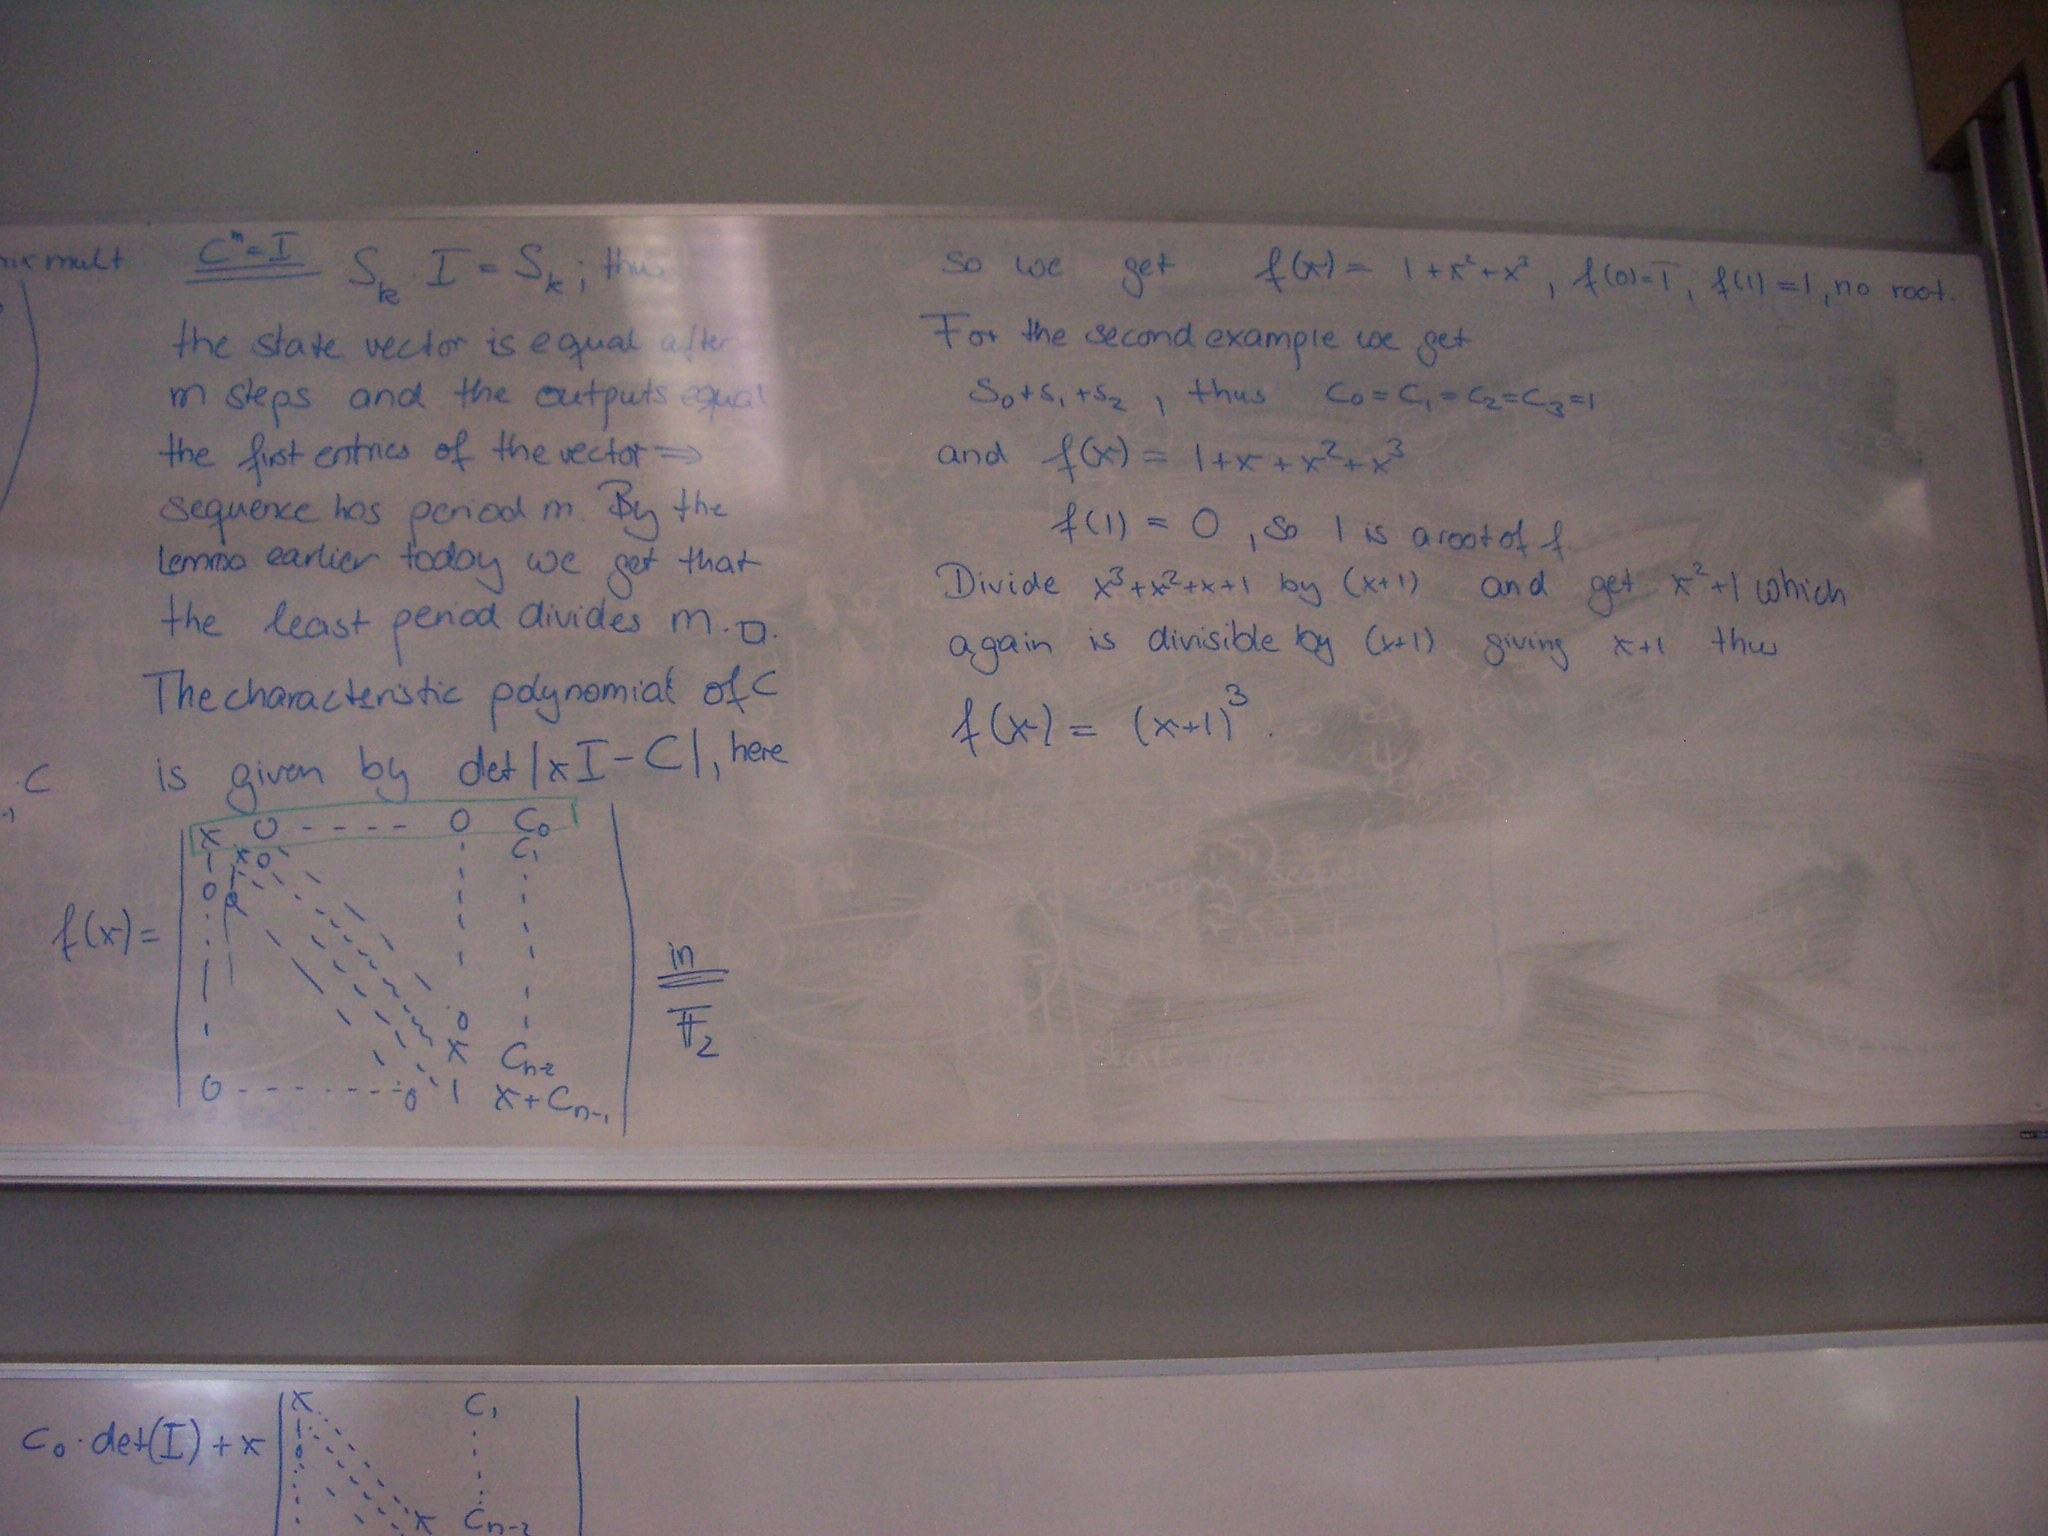 mult
C^m = I
S_k · I = S_k ; thus
the state vector is equal after
m steps and the outputs equal
the first entries of the vector ⇒
sequence has period m. By the
lemma earlier today we get that
the least period divides m. □.
The characteristic polynomial of C
is given by det |xI - C|, here
· C
f(x) =
x 0 - - - - 0 C_0
1 x 0 C_1
0 1
0
0
x C_{n-2}
0 - - - - - - 0 1 x + C_{n-1}
in
F_2
so we get f(x) = 1 + x^2 + x^3, f(0) = 1, f(1) = 1, no root.
For the second example we get
S_0 + S_1 + S_2, thus C_0 = C_1 = C_2 = C_3 = 1
and f(x) = 1 + x + x^2 + x^3
f(1) = 0, so 1 is a root of f.
Divide x^3 + x^2 + x + 1 by (x+1) and get x^2 + 1 which
again is divisible by (x+1) giving x+1 thus
f(x) = (x+1)^3.
C_0 · det(I) + x
x C_1
1
0
x C_{n-2}